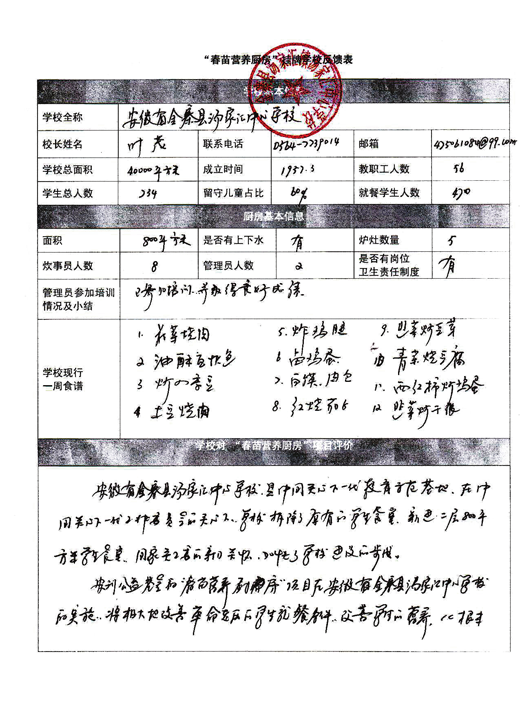 “春苗营养厨房”挂牌学校反馈表
学校基本信息
学校全称 安徽省金寨县汤家汇中心学校
校长姓名 叶茂 联系电话 0564-7239014 邮箱
学校总面积 40000平方米 成立时间 1957.3 教职工人数 56
学生总人数 734 留守儿童占比 60% 就餐学生人数 470
厨房基本信息
面积 800平方米 是否有上下水 有 炉灶数量 5
炊事员人数 8 管理员人数 2 是否有岗位卫生责任制度 有
管理员参加培训情况及小结 已参加培训,并取得良好成绩
学校现行一周食谱
1. 烧肉 5. 炸鸡腿 9. 韭菜炒豆芽
2 油酥 6 卤鸡蛋 10 青菜烧豆腐
3 炒四季豆 7. 肉包 11. 西红柿炒鸡蛋
4 土豆烧肉 8. 红烧 12 韭菜炒干张
学校对“春苗营养厨房”项目评价
安徽省金寨县汤家汇中心学校,是中国关心下一代教育示范基地,在中
国关心下一代工作者委员会的关心下,学校拆除了原有的学生食堂,新建二层800平
方米学生食堂,
营养厨房”项目在安徽省金寨县汤家汇中心学校
的实施,将极大地改善革命老区的学生就餐条件,改善学生的营养,从根本